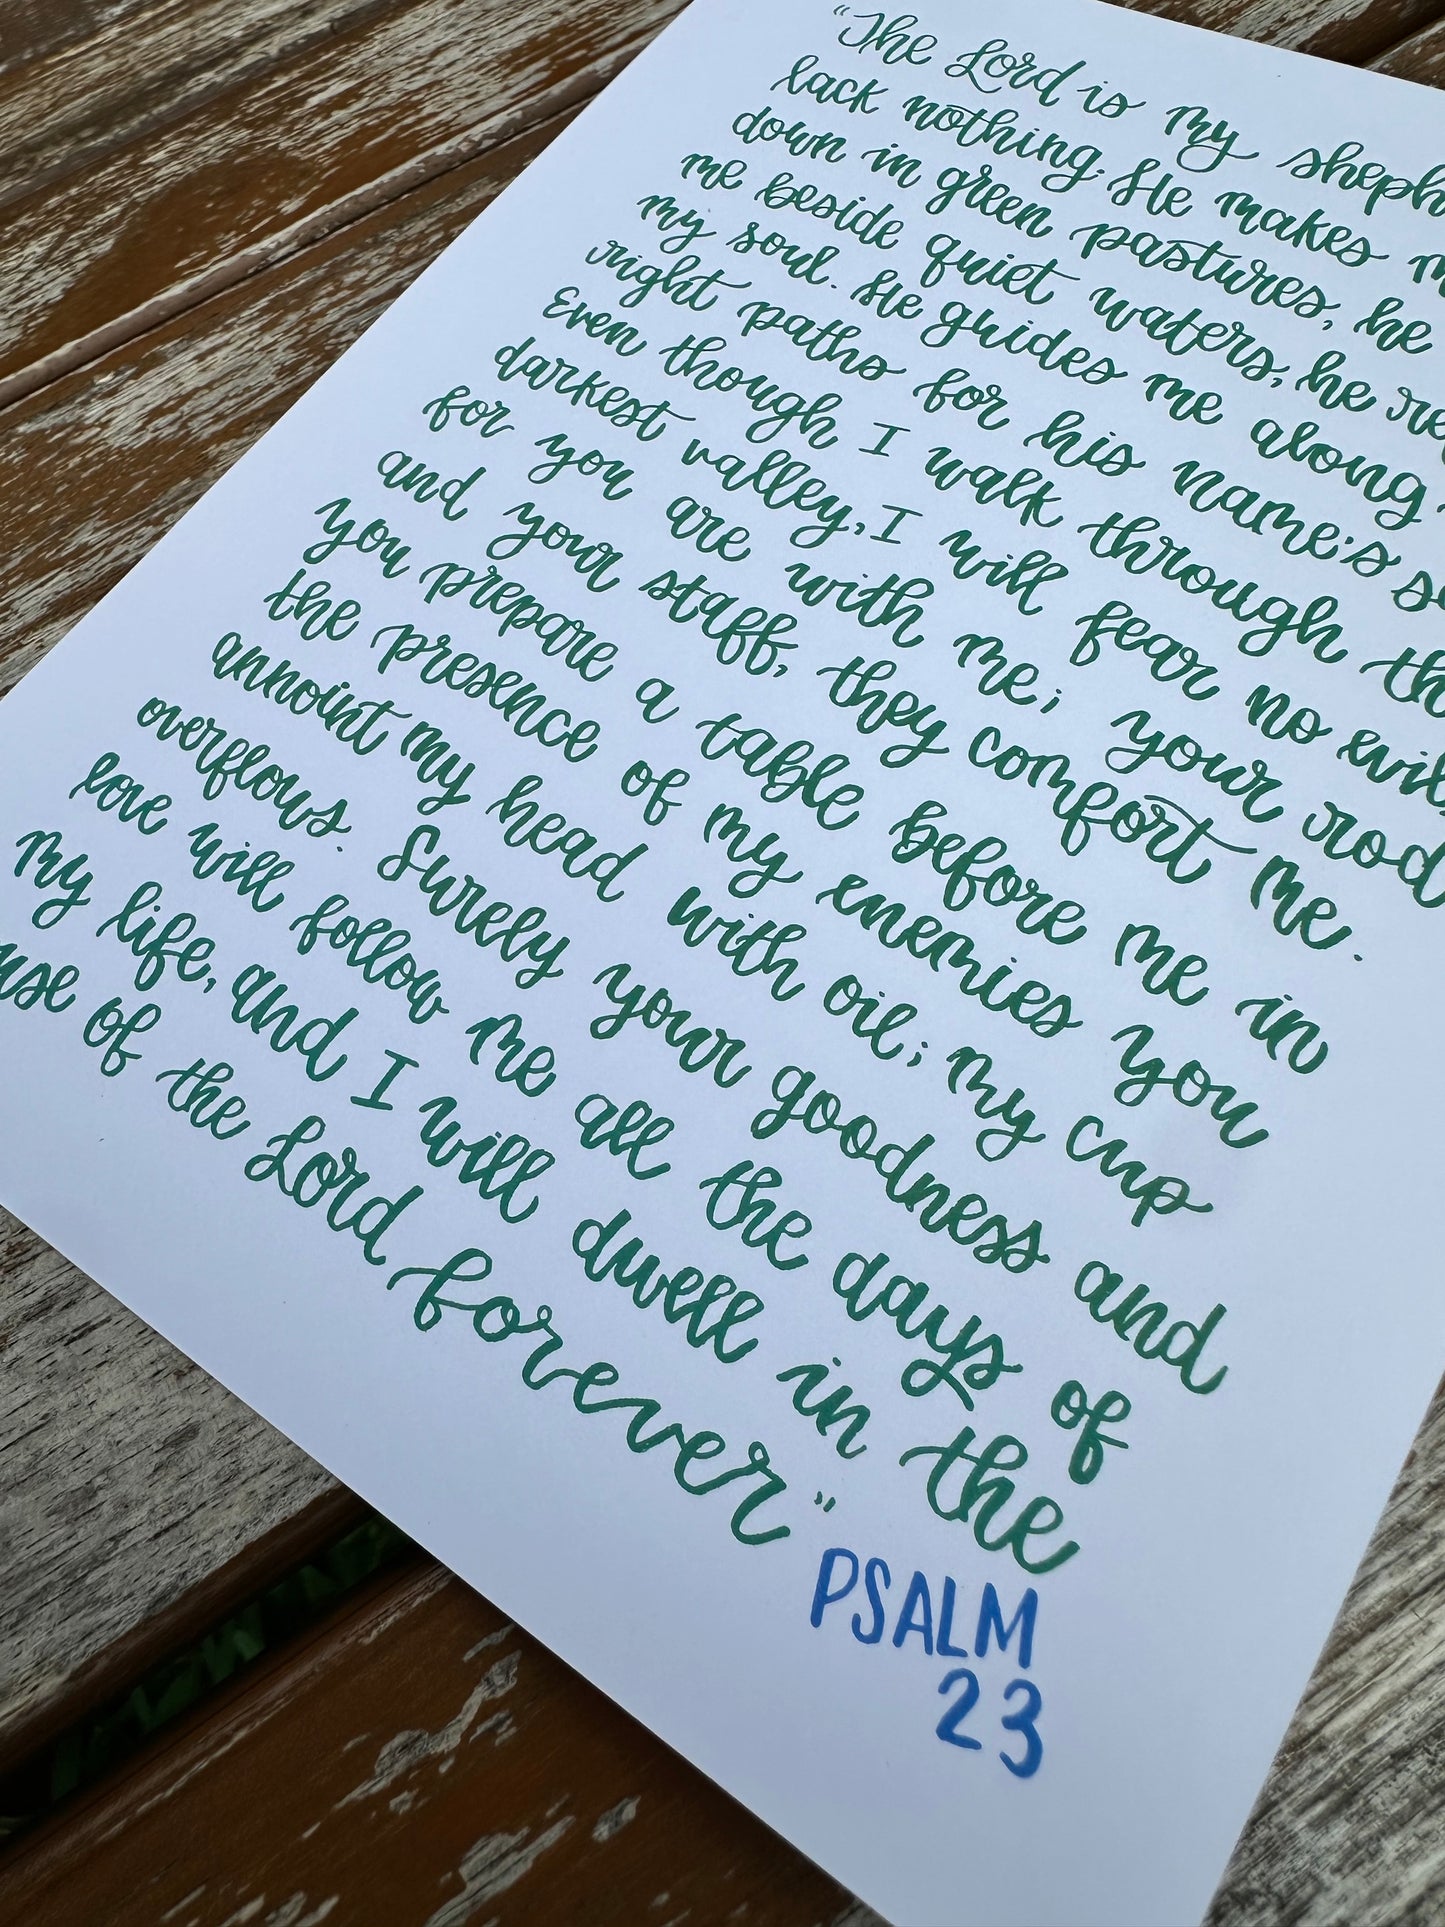 "The Lord is my
lack nothing. He makes
down in green pastures, he
me beside quiet waters, he
my soul. He guides me along
right paths for his name's
Even though I walk through
darkest valley, I will fear no evil,
for you are with me; your rod
and your staff, they comfort me.
you prepare a table before me in
the presence of my enemies you
annoint my head with oil; my cup
overflows. Surely your goodness and
love will follow me all the days of
my life, and I will dwell in the
of the Lord forever"
PSALM
23